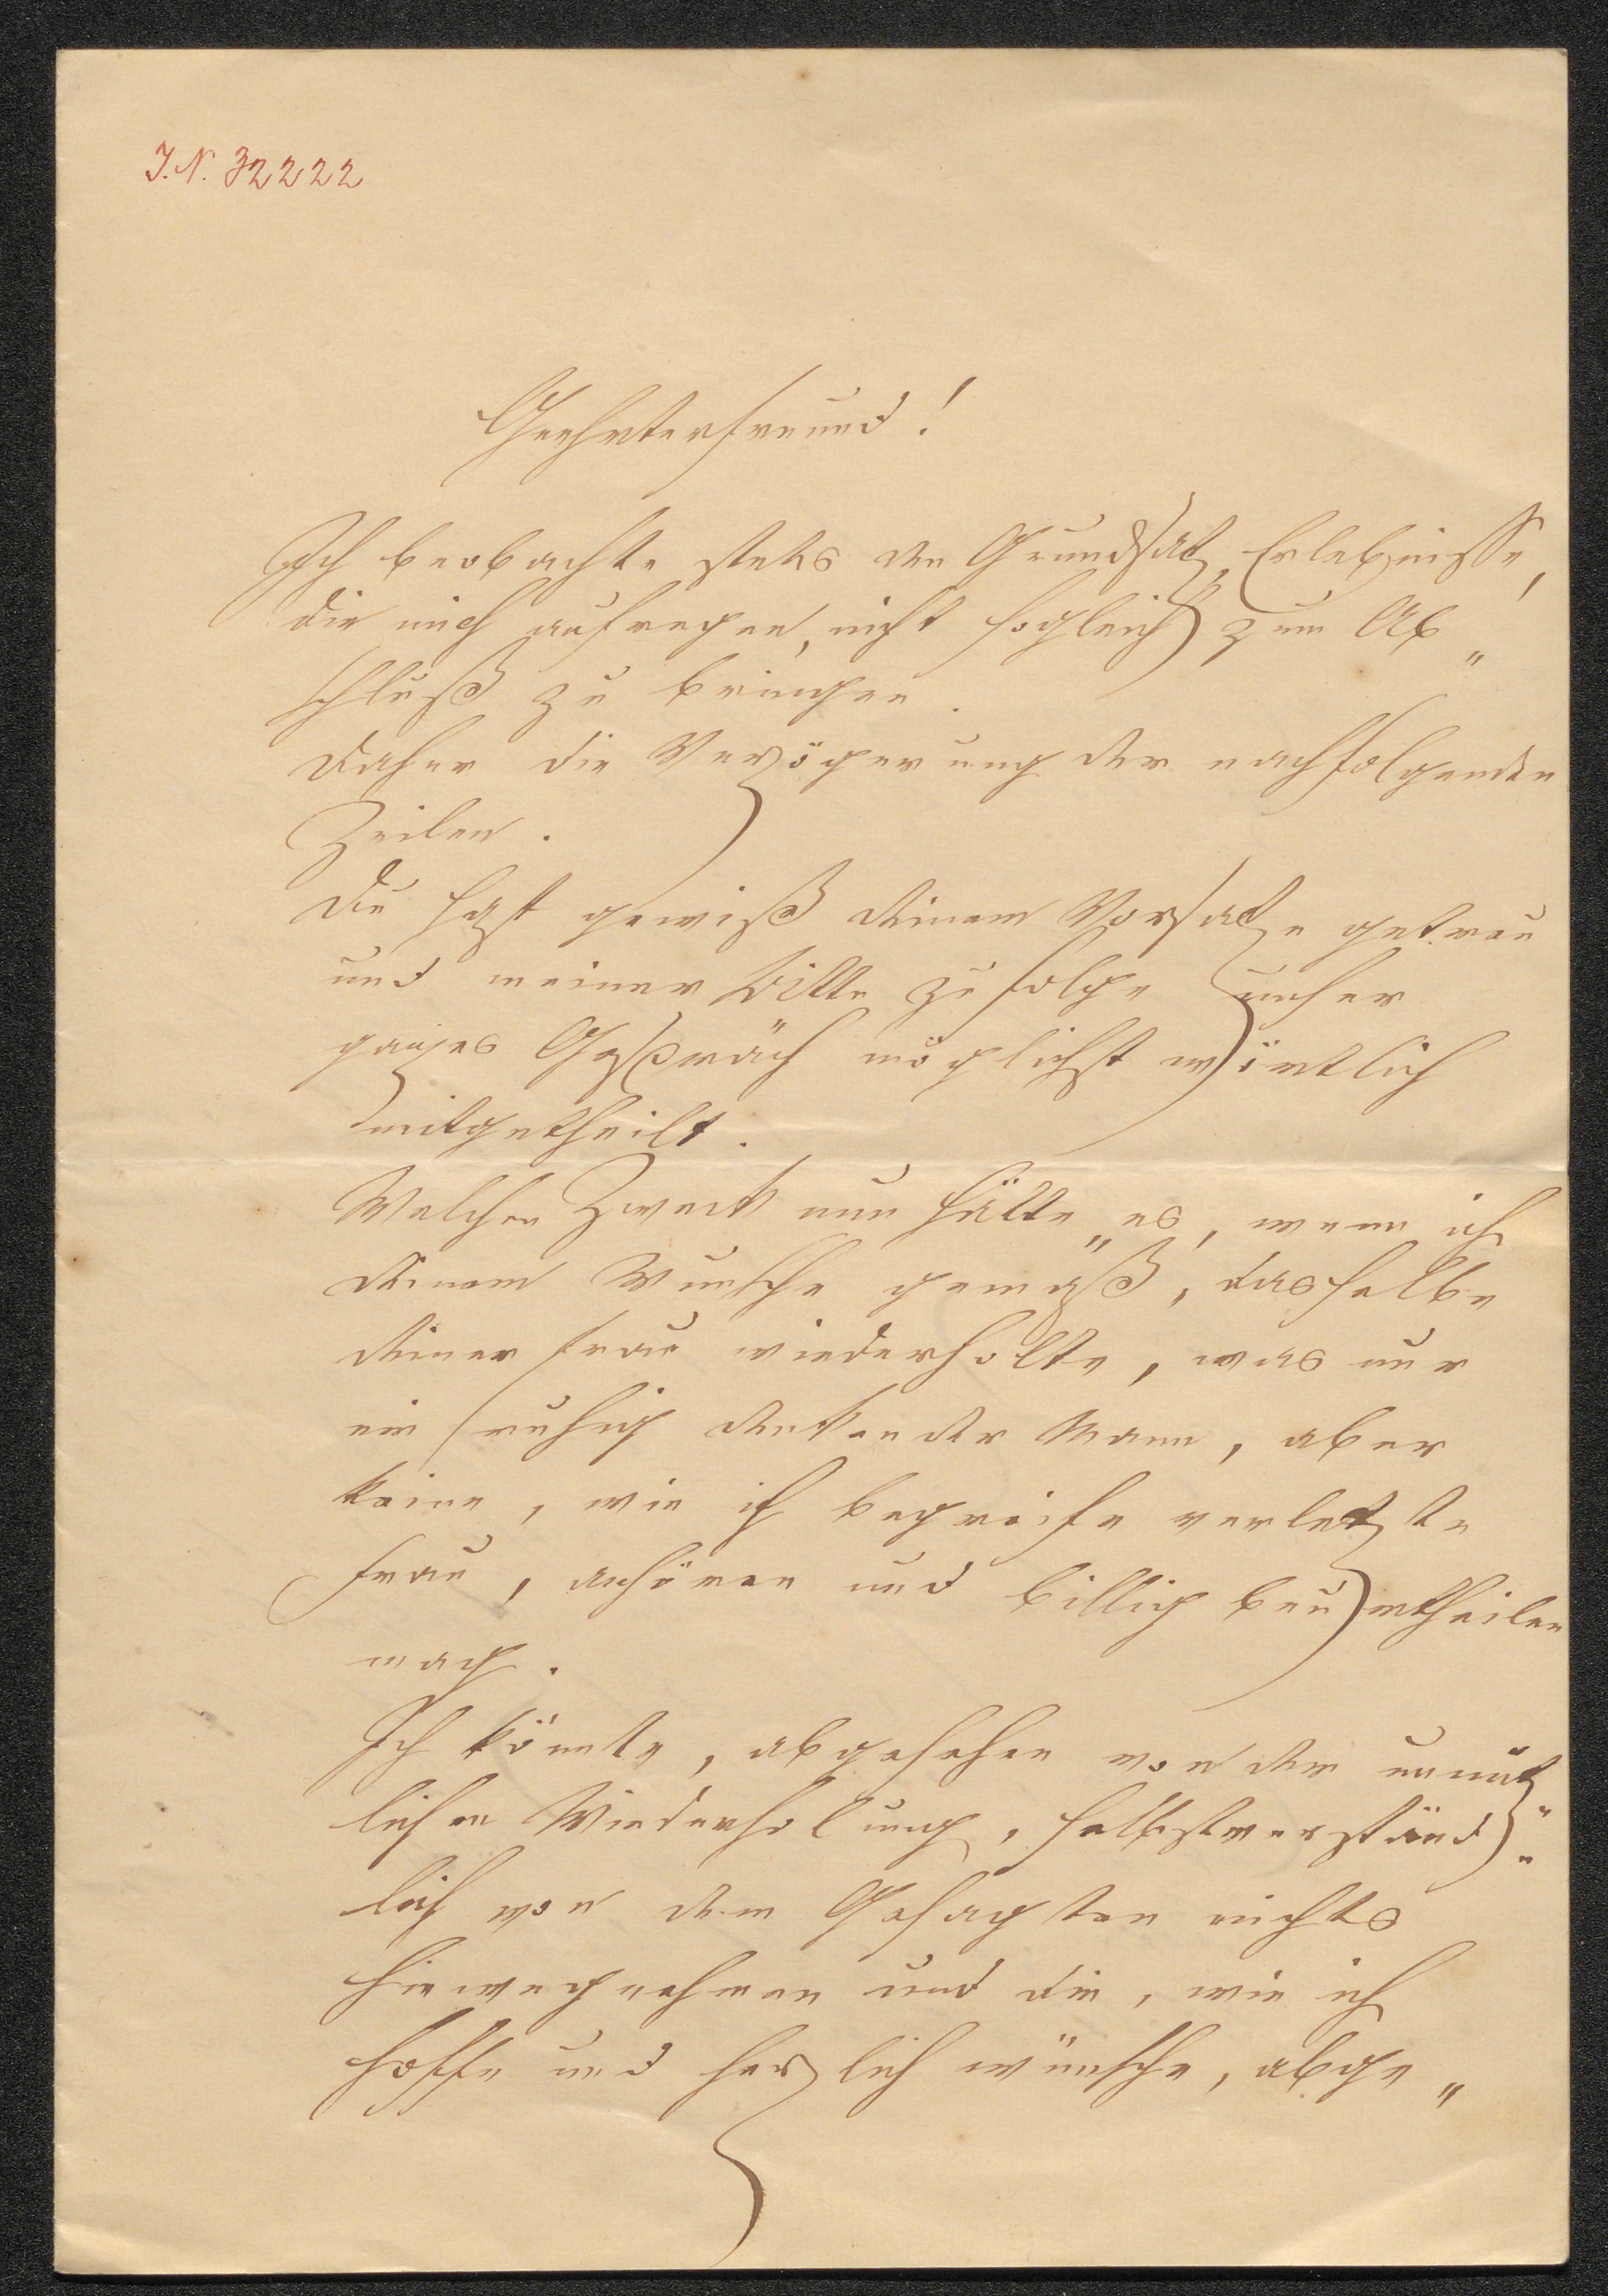 J.N. 32222
Geehrter Freund!
Ich beobachte stets den Grundsatz, Erlebnisse,
die mich aufregen, nicht sogleich zum Ab„
schluß zu bringen.
Daher die Verzögerung der nachfolgenden
Zeilen.
Du hast gewiß deinem Vorsatze getreu
und meiner Bitte zufolge unser
ganzes Gespräch möglichst wörtlich
mitgetheilt.
Welchen Zweck nun hätte es, wenn ich
deinem Wunsche gemäß, dasselbe
deiner Frau wiederholte, was nur
ein ruhig denkender Mann, aber
keine, wie ich begreife verletzte
Frau, anhören und billig beurtheilen
mag.
Ich könnte, abgesehen von der unnütz„
lichen Wiederholung, selbstverständ„
lich von dem Gesagten nichts
hinwegnehmen und die, wie ich
hoffe und herzlich wünsche, abge„